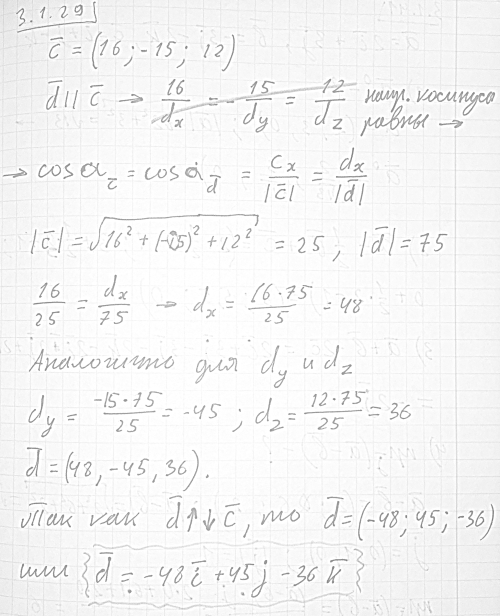 3.1.29
c̄ = (16; -15; 12)
d̄ || c̄ → 16/dx = -15/dy = 12/dz напр. косинусы
равны →
→ cos α c̄ = cos α d̄ = cx/|c̄| = dx/|d̄|
|c̄| = √(16² + (-15)² + 12²) = 25, |d̄| = 75
16/25 = dx/75 → dx = 16·75/25 = 48
Аналогично для dy и dz
dy = -15·75/25 = -45; dz = 12·75/25 = 36
d̄ = (48, -45, 36).
Так как d̄ ↑↓ c̄, то d̄ = (-48; 45; -36)
или {d̄ = -48 ī + 45 j - 36 k̄}